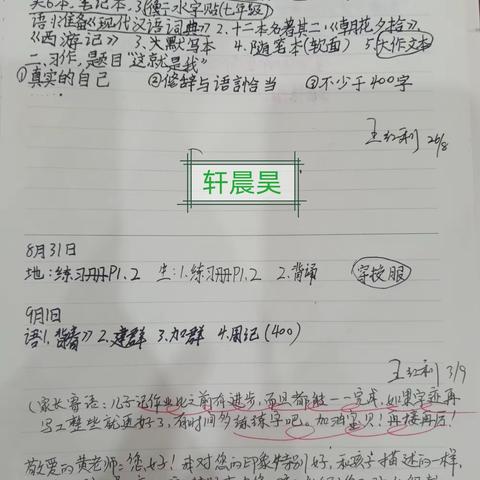 英6本.笔记本.3《衡水字帖(七年级)
语:1.准备《现代汉语词典》2.十二本名著其二:《朝花夕拾》、
《西游记》 3.大默写本 4.随笔本(软面) 5.大作文本
二、习作,题目"这就是我"
①真实的自己 ②修辞与语言恰当 ③不少于400字
王红利 26/8
轩晨昊
8月31日
地:练习册P1、2 生:1.练习册P1、2 2.背诵 穿校服
9月1日
语1.背《春》 2.建群 3.加群 4.周记(400)
王红利 3/9
(家长寄语:儿子记作业比之前有进步,而且都能一一完成,如果字迹再
写工整些就更好了,有时间多练练字吧。加油宝贝!再接再厉!
敬爱的黄老师:您好!本对您的印象特别好,和孩子描述的一样,